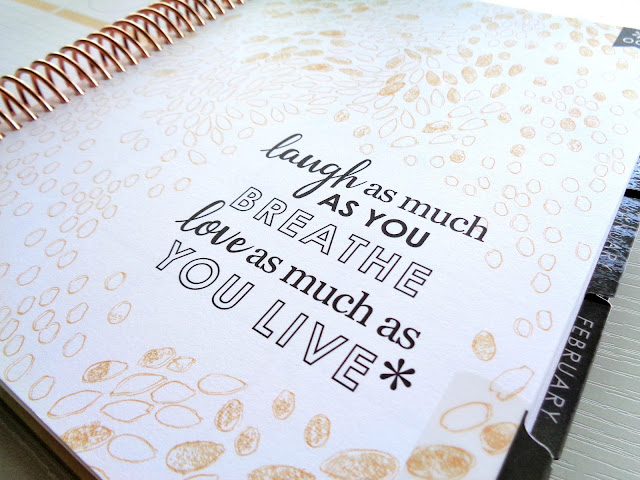 laugh as much
AS YOU
BREATHE
love as much as
YOU LIVE*
FEBRUARY